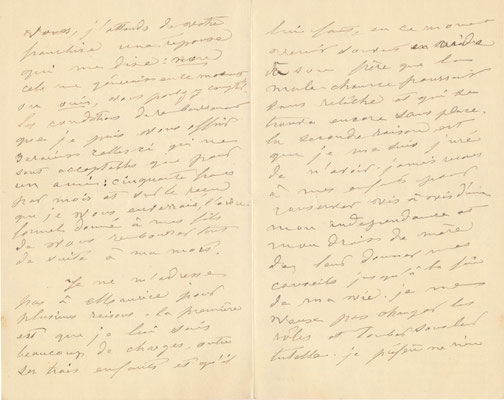 Vous, j'attends de votre
franchise une réponse
qui me dise: non
cela me gêne en ce moment
ou oui, vous pouvez y compter
les conditions de remboursement
que je puis vous offrir
seraient celles-ci qui ne
sont acceptables que pour
un ami: cinquante francs
par mois et sur le reçu
que je vous enverrais, l'ordre
formel donné à mes fils
de vous rembourser tout
de suite à ma mort.
Je ne m'adresse
pas à Maurice pour
plusieurs raisons. la première
est que je lui sais
beaucoup de charges, outre
ses trois enfants et qu'il
lui faut, en ce moment
venir souvent en aide
à son frère que la
male chance poursuit
sans relâche et qui se
trouve encore sans place.
la seconde raison est
que je me suis juré
de n'avoir jamais recours
à mes enfants pour
conserver vis à vis d'eux
mon indépendance et
mon droit de mère
de leur donner mes
conseils jusqu'à la fin
de ma vie. je ne
veux pas changer les
rôles et tomber sous leur
tutelle. je préfère ne rien